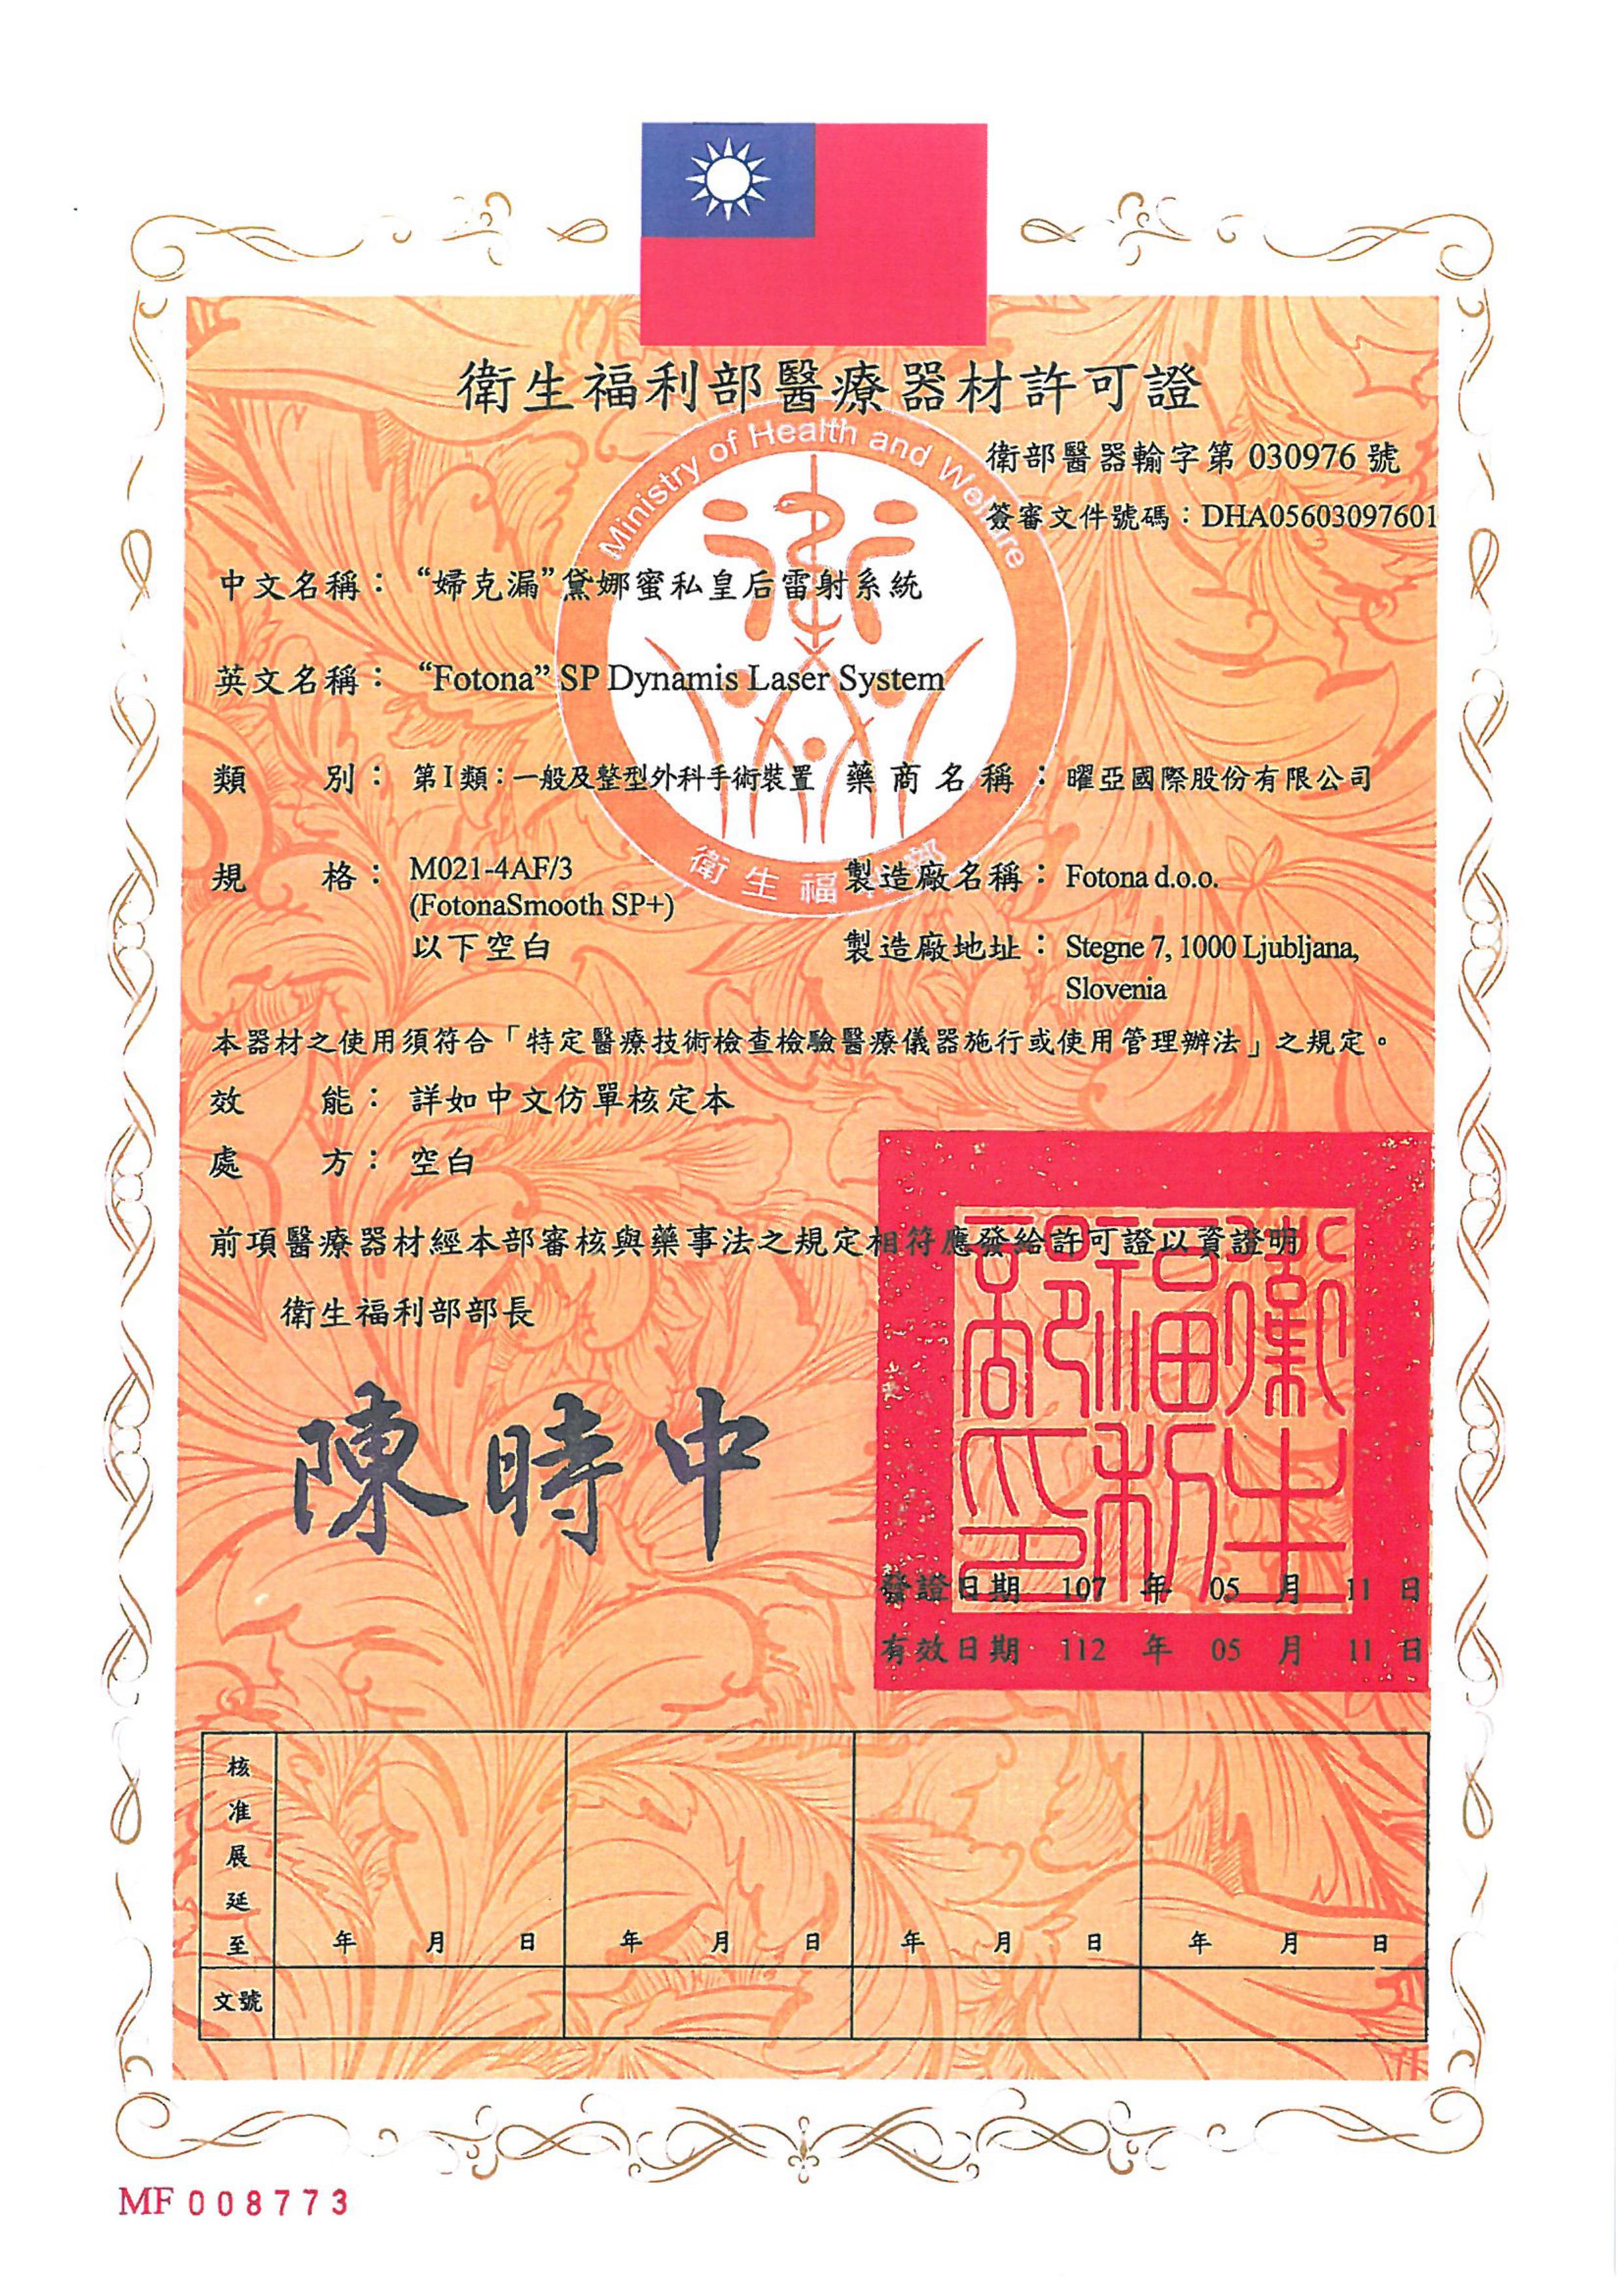 衛生福利部醫療器材許可證
Ministry of Health and Welfare
衛部醫器輸字第 030976 號
簽審文件號碼：DHA05603097601
中文名稱： “婦克漏”黛娜蜜私皇后雷射系統
英文名稱： “Fotona” SP Dynamis Laser System
類 別： 第I類：一般及整型外科手術裝置 藥商名稱：曜亞國際股份有限公司
規 格： M021-4AF/3
(FotonaSmooth SP+)
以下空白
衛生福利部
製造廠名稱： Fotona d.o.o.
製造廠地址： Stegne 7, 1000 Ljubljana,
Slovenia
本器材之使用須符合「特定醫療技術檢查檢驗醫療儀器施行或使用管理辦法」之規定。
效 能： 詳如中文仿單核定本
處 方： 空白
前項醫療器材經本部審核與藥事法之規定相符應發給許可證以資證明
衛生福利部部長
陳時中
衛生福利部印
發證日期 107 年 05 月 11 日
有效日期 112 年 05 月 11 日
核准展延至 年 月 日 年 月 日 年 月 日 年 月 日
文號
MF 008773